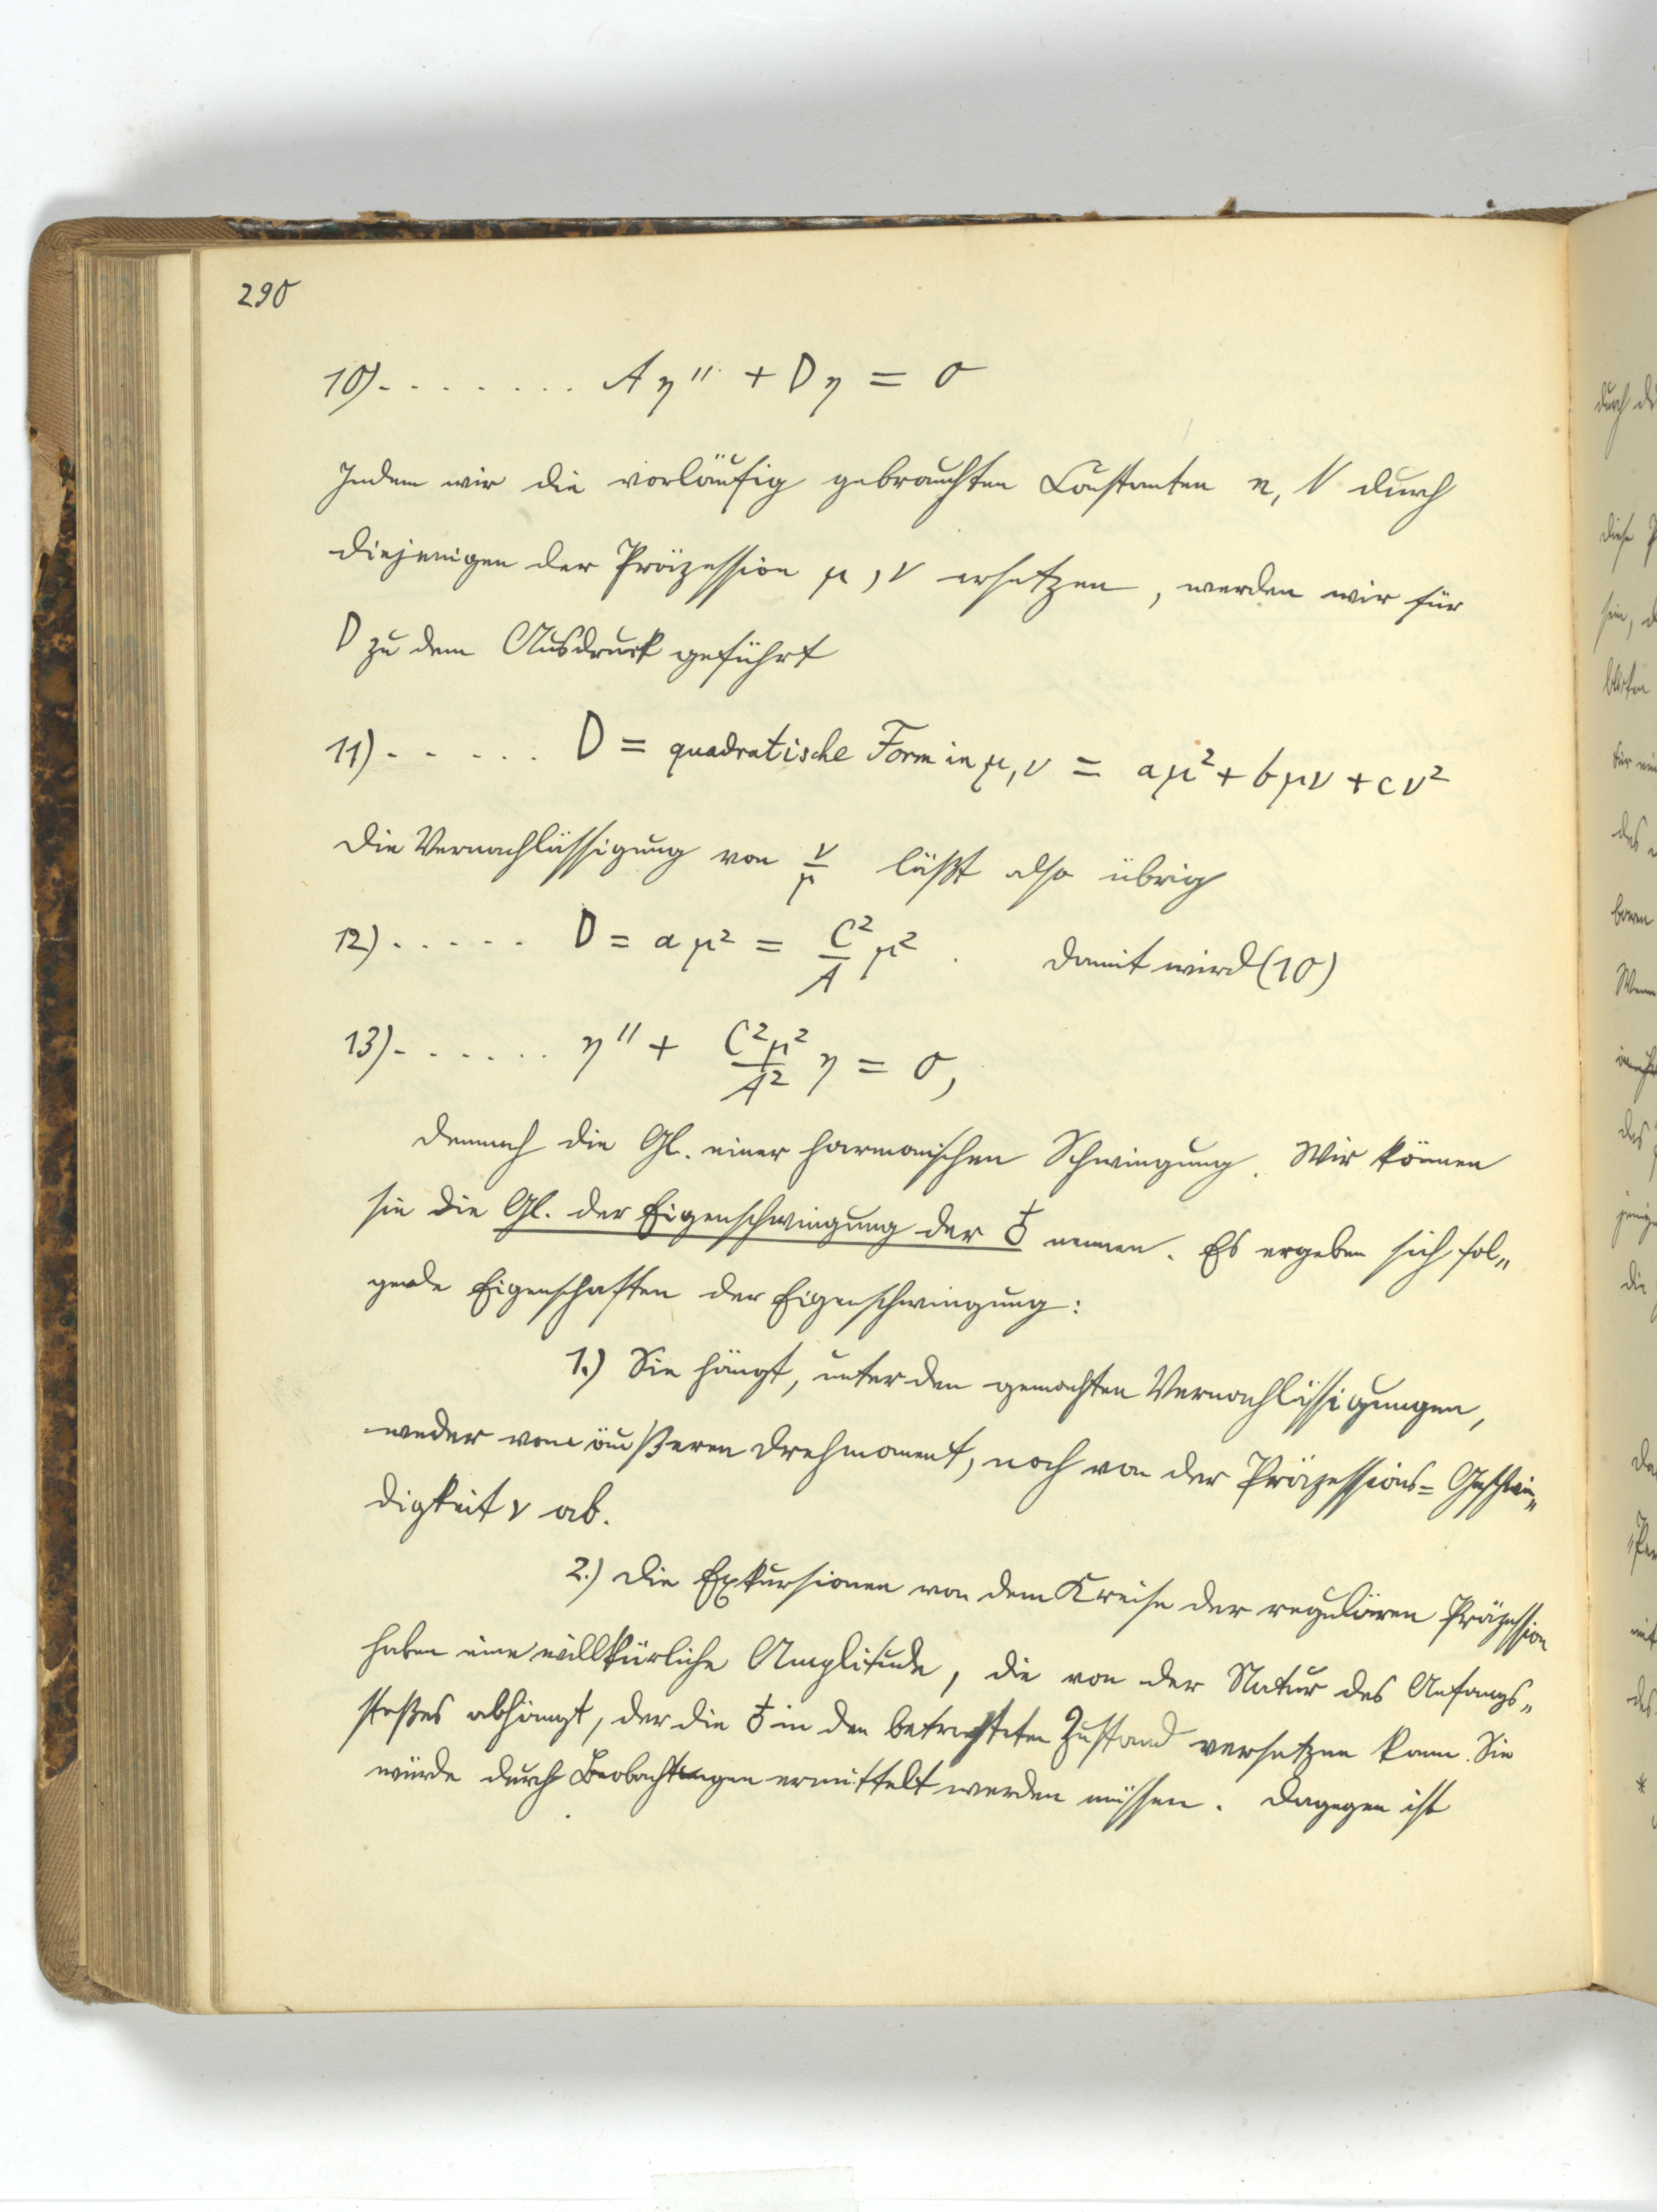 290
10). . . . . . . . A η'' + D η = 0
Indem wir die vorläufig gebrauchten Constanten n, N durch
diejenigen der Präzession μ, ν ersetzen, werden wir für
D zu dem Ausdruck geführt
11) . . . . . D = quadratische Form in μ, ν = aμ² + bμν + cν²
Die Vernachlässigung von ν/μ läßt also übrig
12) . . . . . D = aμ² = C²/A μ². Damit wird (10)
13) . . . . . . η'' + C²μ²/A² η = 0,
demnach die Gl. einer harmonischen Schwingung. Wir können
sie die Gl. der Eigenschwingung der ♁ nennen. Es ergeben sich fol„
gende Eigenschaften der Eigenschwingung:
1.) Sie hängt, unter den gemachten Vernachlässigungen,
weder vom äußeren Drehmoment, noch von der Präzessions= Geschwin„
digkeit ν ab.
2.) Die Exkursionen von dem Kreise der regulären Präzession
haben eine willkürliche Amplitude, die von der Natur des Anfangs„
stoßes abhängt, der die ♁ in den betrachteten Zustand versetzen kann. Sie
würde durch Beobachtungen ermittelt werden müssen. Dagegen ist
durch
diese
sein,
des
Wenn
des
die
des
*